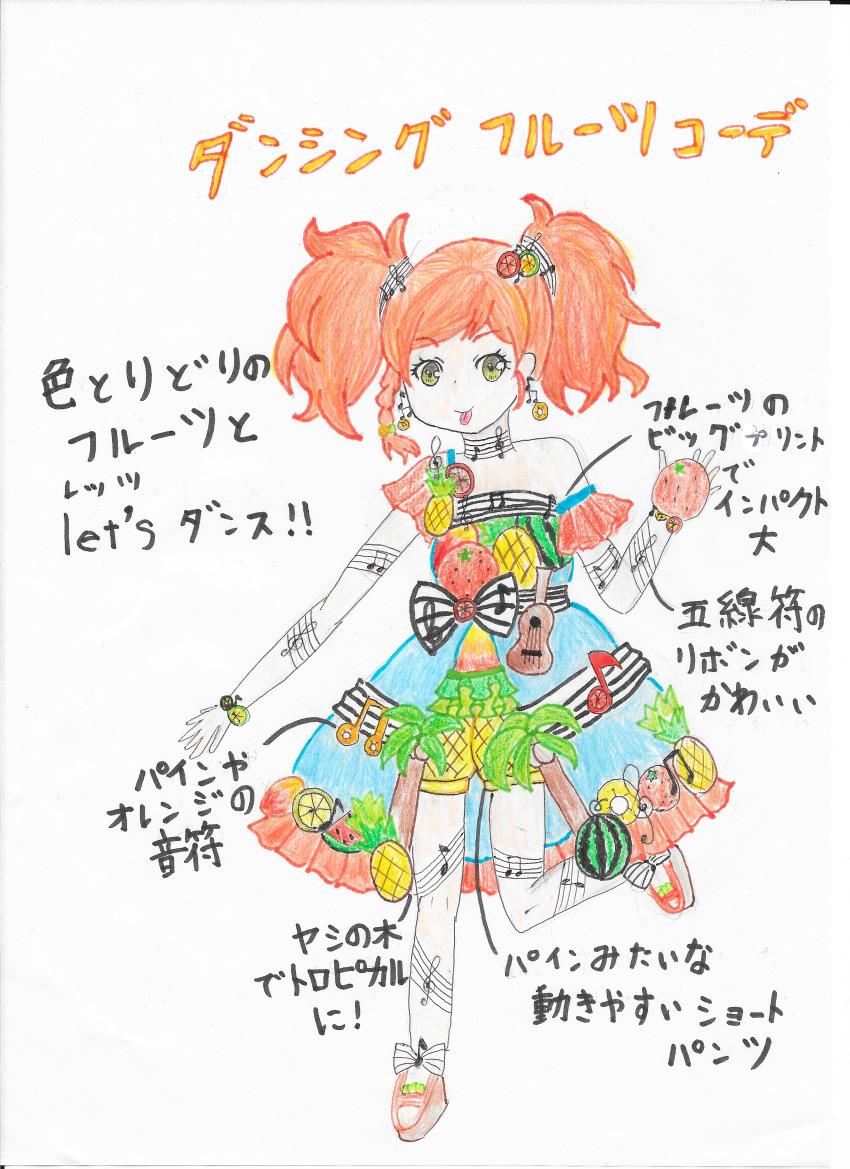 ダンシング フルーツコーデ
色とりどりの
フルーツと
レッツ
let's ダンス!!
フルーツの
ビッグプリント
で
インパクト
大
五線符の
リボンが
かわいい
パインや
オレンジの
音符
ヤシの木
でトロピカル
に!
パインみたいな
動きやすい ショート
パンツ